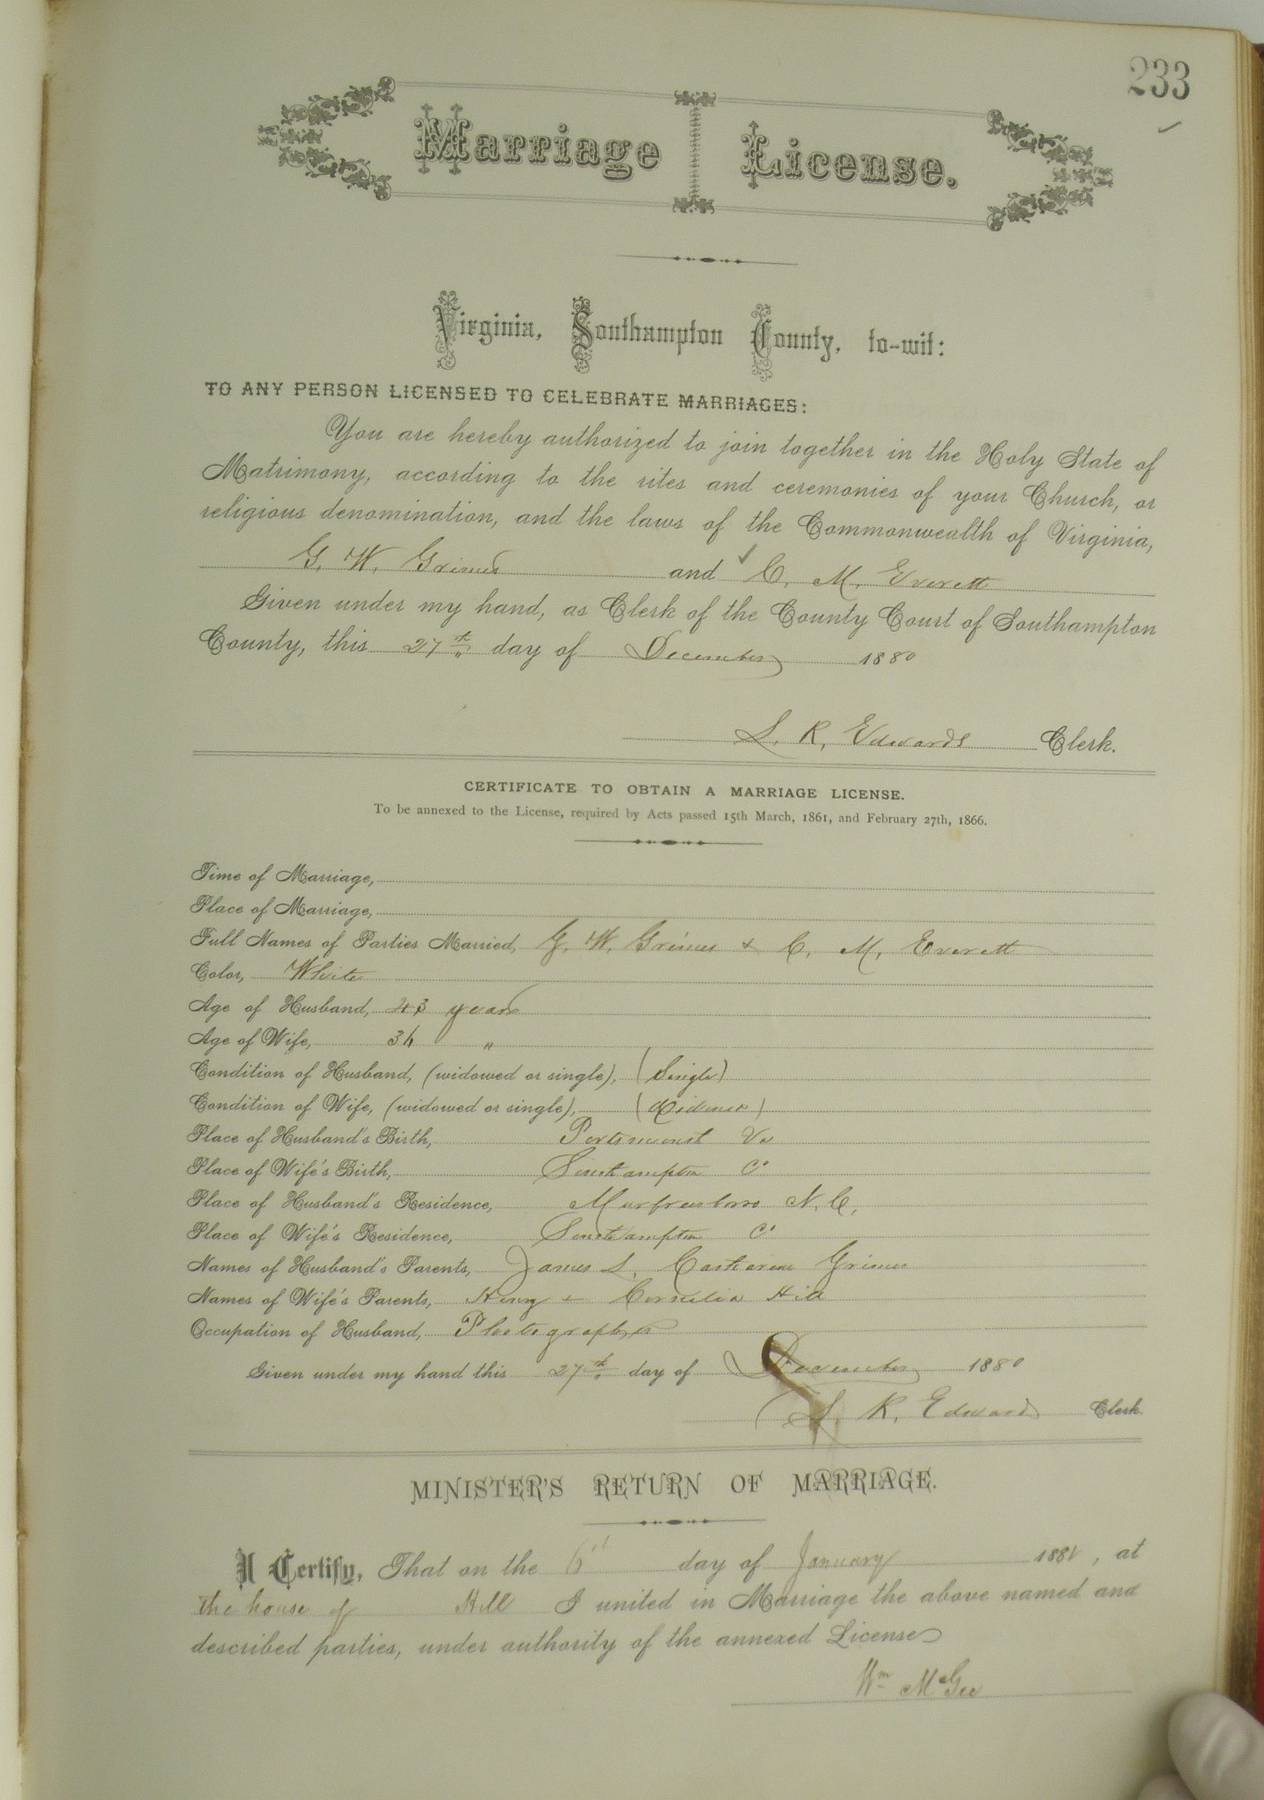 233
Marriage License.
Virginia, Southampton County, to-wit:
TO ANY PERSON LICENSED TO CELEBRATE MARRIAGES:
You are hereby authorized to join together in the Holy State of
Matrimony, according to the rites and ceremonies of your Church, or
religious denomination, and the laws of the Commonwealth of Virginia,
G. W. Grimes and C. M. Everett
Given under my hand, as Clerk of the County Court of Southampton
County, this 27th day of December 1880
L. R. Edwards Clerk.
CERTIFICATE TO OBTAIN A MARRIAGE LICENSE.
To be annexed to the License, required by Acts passed 15th March, 1861, and February 27th, 1866.
Time of Marriage,
Place of Marriage,
Full Names of Parties Married, G. W. Grimes + C. M. Everett
Color, White
Age of Husband, 43 years
Age of Wife, 36 "
Condition of Husband, (widowed or single), (Single)
Condition of Wife, (widowed or single), (Widowed)
Place of Husband's Birth, Portsmouth Va
Place of Wife's Birth, Southampton Co
Place of Husband's Residence, Murfreesboro N.C.
Place of Wife's Residence, Southampton Co
Names of Husband's Parents, James L. Catharine Grimes
Names of Wife's Parents, Henry + Cornelia Hill
Occupation of Husband, Photographer
Given under my hand this 27th day of December 1880
L. R. Edwards Clerk.
MINISTER'S RETURN OF MARRIAGE.
I Certify, That on the 6th day of January 1881, at
the house of Hill I united in Marriage the above named and
described parties, under authority of the annexed License
Wm McGee